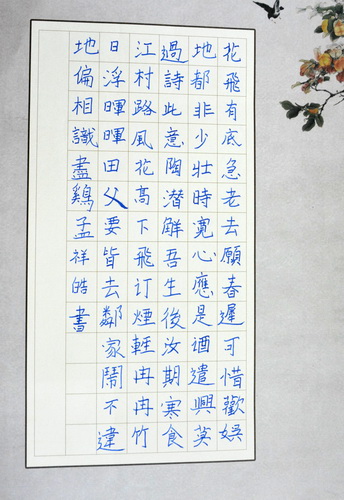 花飛有底急老去願春遲可惜歡娛
地都非少壯時寬心應是酒遣興莫
過詩此意陶潛解吾生後汝期寒食
江村路風花高下飛汀煙輕冉冉竹
日浮暉暉田父要皆去鄰家鬧不違
地偏相識盡鷄孟祥皓書